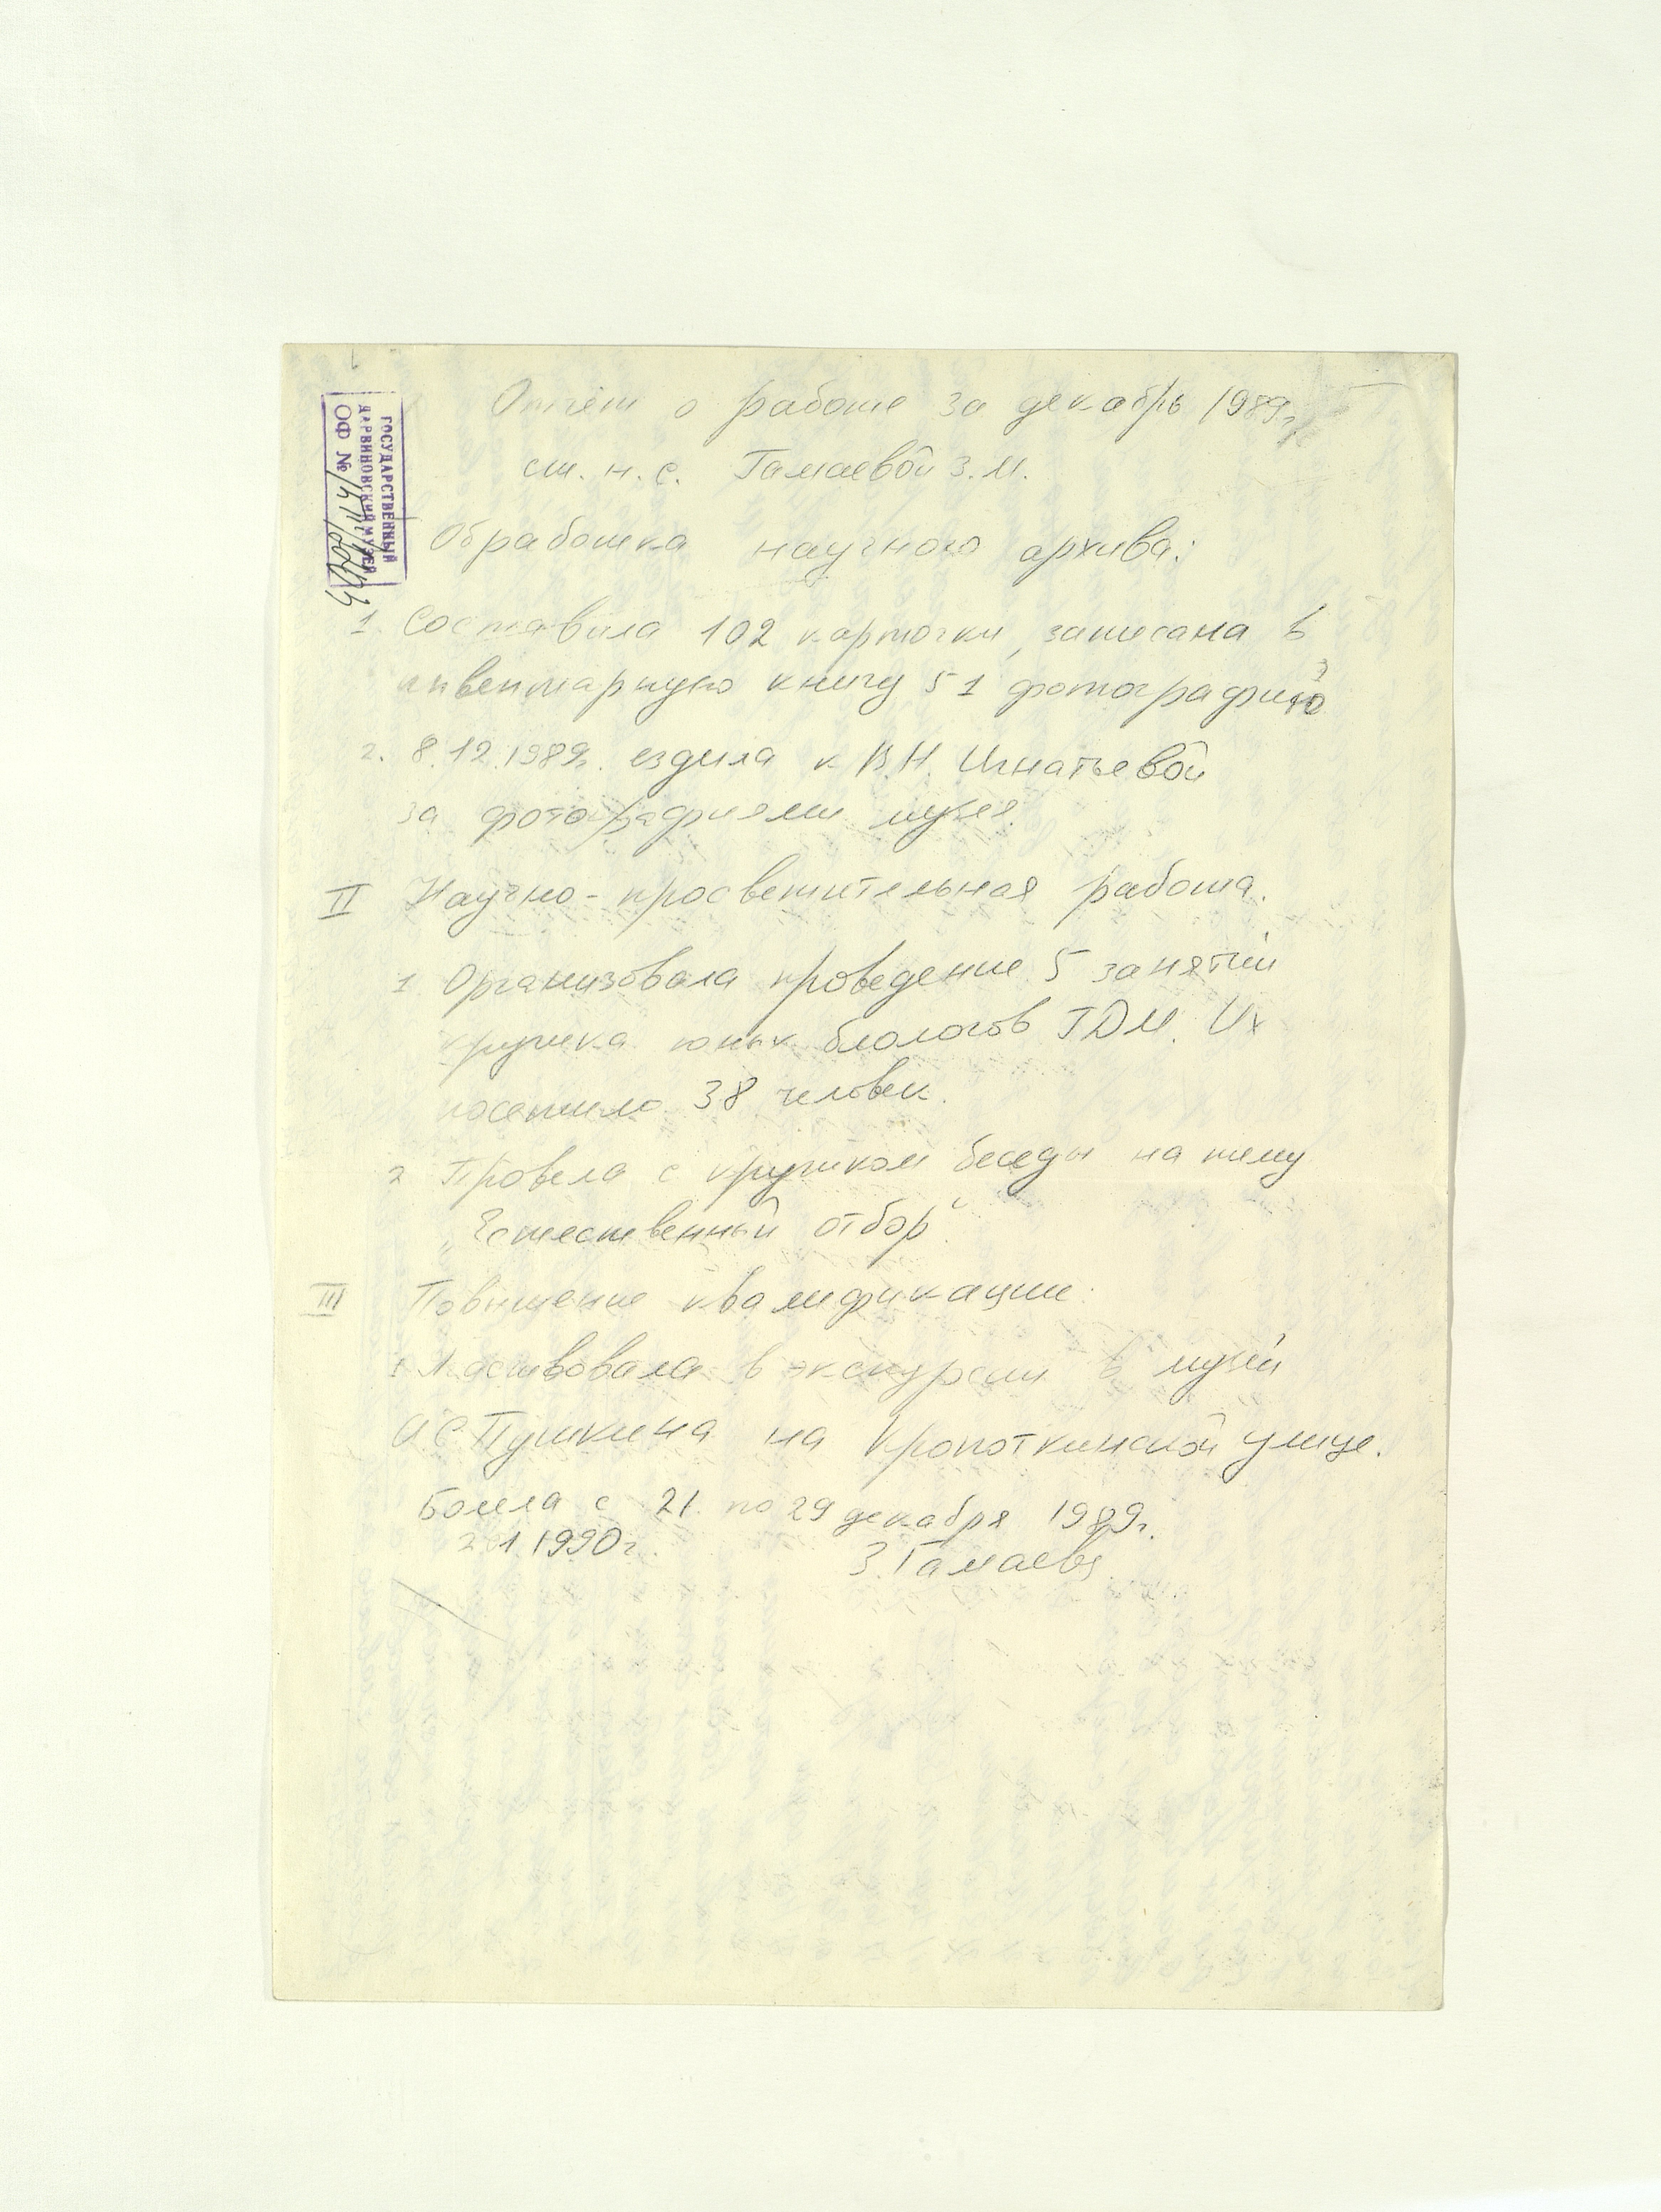 ГОСУДАРСТВЕННЫЙ
ДАРВИНОВСКИЙ МУЗЕЙ
ОФ №
Отчёт о работе за декабрь 1989г.
ст. н. с. Гамаевой З.М.
Обработка научного архива:
1. Составила 102 карточки, записана в
инвентарную книгу 51 фотографию
2. 8.12.1989г. ездила к В.Н. Игнатьевой
за фотографиями музея.
II Научно-просветительная работа.
1. Организовала проведение 5 занятий
кружка юных биологов ГДМ. Их
посетило 38 человек.
2 Провела с кружком беседы на тему
„Естественный отбор“.
III Повышение квалификации:
1 Участвовала в экскурсии в музей
А С Пушкина на Кропоткинской улице.
Болела с 21 по 29 декабря 1989г.
2 1 1990г. З. Гамаева